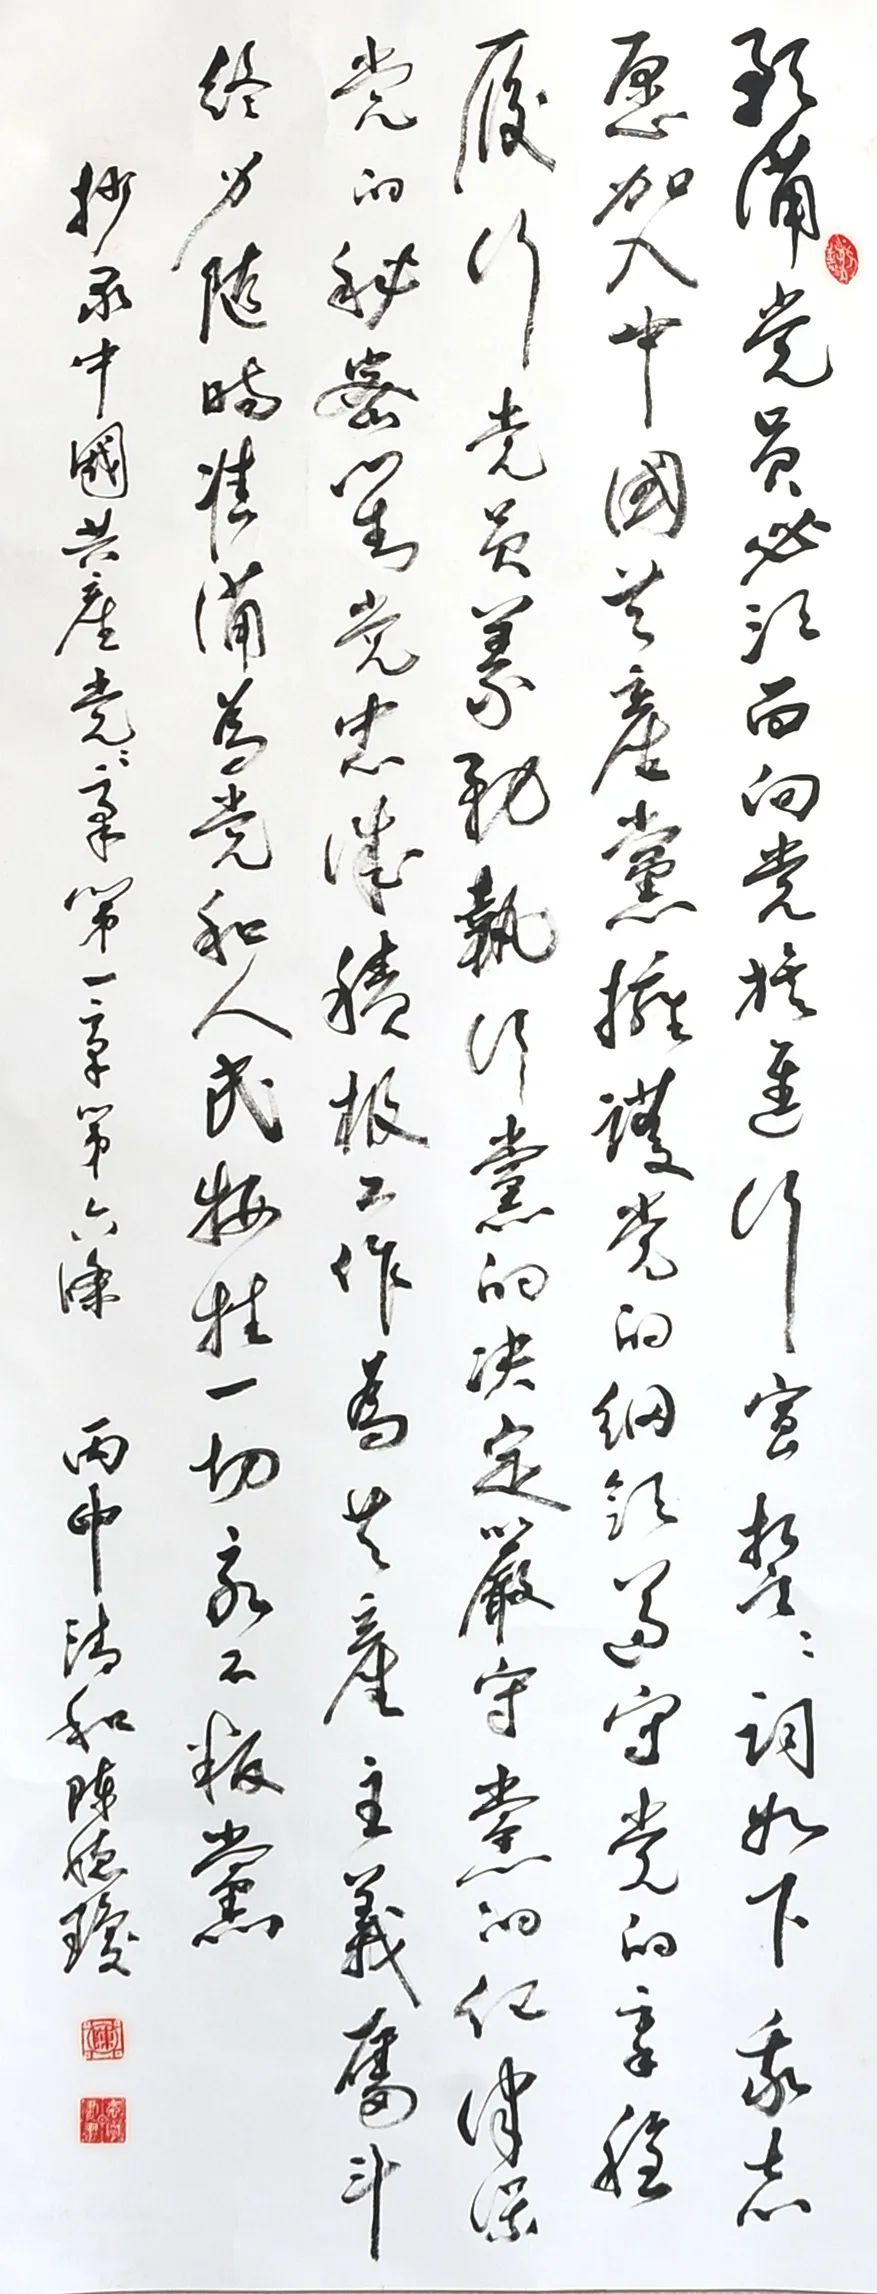 預備党員必須面向党旗進行宣誓誓詞如下我志
愿加入中國共產黨擁護党的綱領遵守党的章程
履行党員義務執行黨的决定嚴守黨的紀律保守
党的秘密對党忠誠積極工作為共產主義奮斗
終身隨時准備為党和人民犧牲一切永不叛黨
抄录中國共産党党章第一章第六條 丙申清和陳德瓊